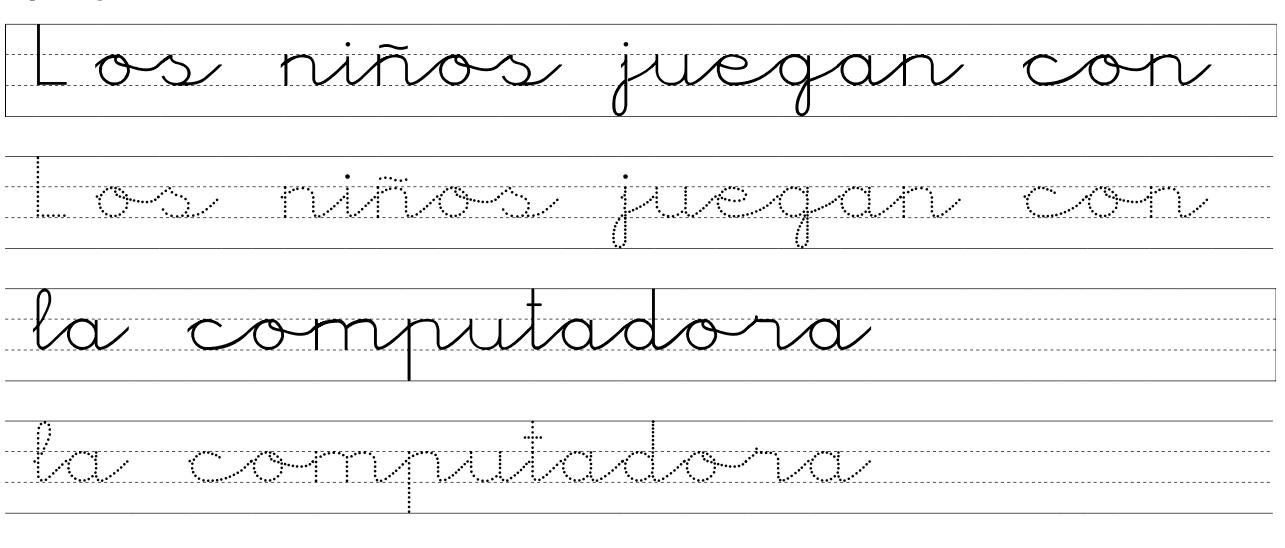 Los niños juegan con
Los niños juegan con
la computadora
la computadora